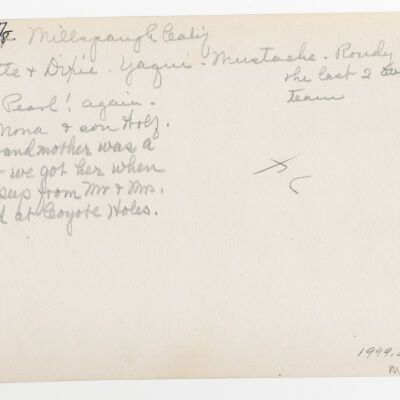 Millspaugh Calif
tte & Dixie. Yaqui - Mustache. Rowdy
the last 2
team
Pearl! again.
Nona & son Holf.
andmother was a
- we got her when
sup from Mr & Mrs.
d at Coyote Holes.
1999.
M